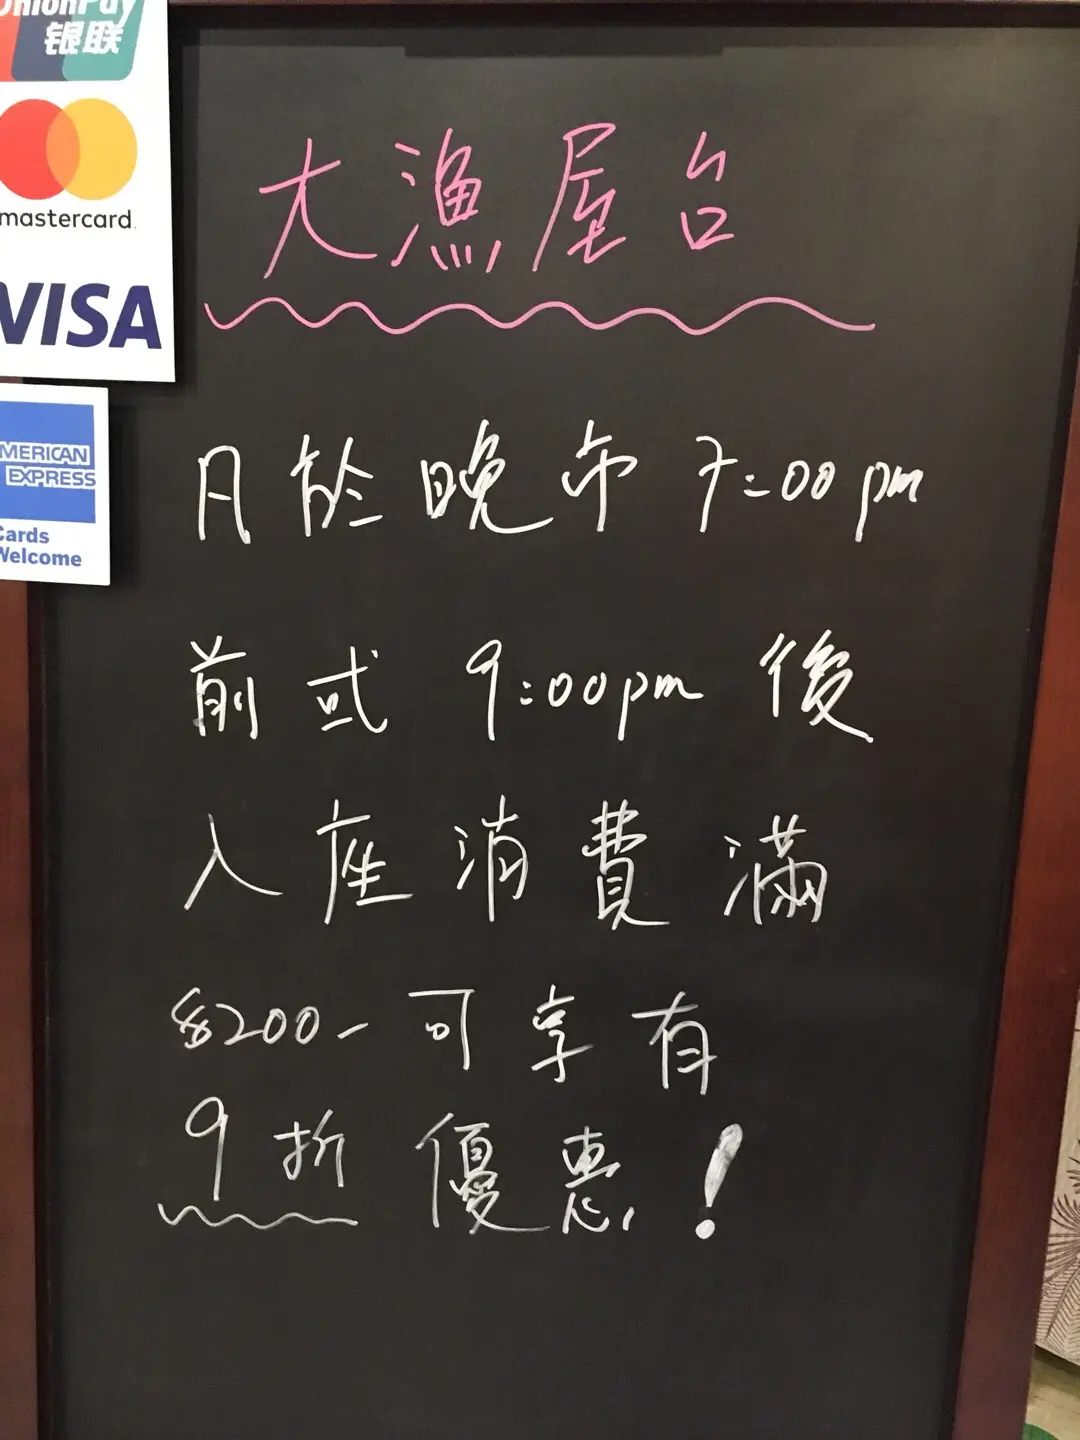 UnionPay
银联
mastercard.
VISA
AMERICAN
EXPRESS
Cards
Welcome
大漁屋台
月於晚市 7:00pm
前或 9:00pm 後
入座消費滿
$200- 可享有
9折優惠!